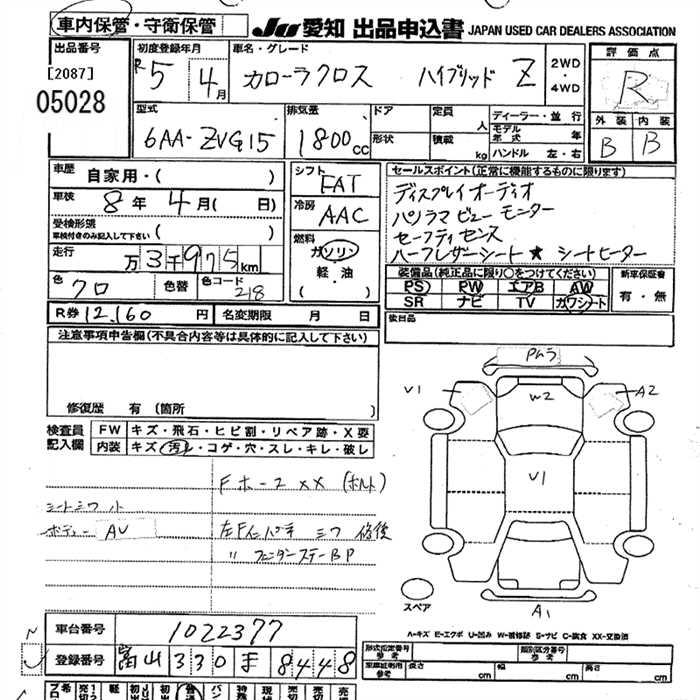 車内保管・守衛保管
JU 愛知 出品申込書 JAPAN USED CAR DEALERS ASSOCIATION
出品番号
[2087]
05028
初度登録年月
R5 4月
車名・グレード
カローラクロス ハイブリッド Z
2WD・4WD
評価点
R
外装 内装
B B
型式
6AA-ZVG15
排気量
1800cc
ドア
形状
定員 人
積載 kg
ディーラー・並行
モデル年式 年
ハンドル 左・右
車歴
自家用・( )
車検
8年 4月( 日)
受検形態
車検付きのみ記入して下さい ( )
走行
万3千975km
色
クロ
色替
色コード
218
シフト
FAT
冷房
AAC
燃料
ガソリン
軽・油
( )
セールスポイント(正常に機能するものに限ります)
ディスプレイオーディオ
パノラマビューモニター
セーフティセンス
ハーフレザーシート★シートヒーター
装備品(純正品に限り○をつけてください)
PS PW エアB AW
SR ナビ TV カワシート
新車保証書
有・無
R券 12,160円
名変期限 月 日
後日品
注意事項申告欄(不具合内容等は具体的に記入して下さい)
修復歴 有(箇所 )
検査員記入欄
FW キズ・飛石・ヒビ割・リペア跡・X要
内装 キズ・汚レ・コゲ・穴・スレ・キレ・破レ
Fホース XX (ボルト)
シートシワ 小
ボディー AU
左Fインパネ シワ 修後
〃 フェンダーステー BP
PMラ
V1
W2
A2
V1
A1
スペア
A-キズ E-エクボ U-凹み W-補修跡 S-サビ C-腐食 XX-交換済
車台番号
1022377
登録番号
富山 330 す 8448
形式指定番号
参考
類別区分番号
参考
車庫証明用
参考
長さ cm
幅 cm
高さ cm